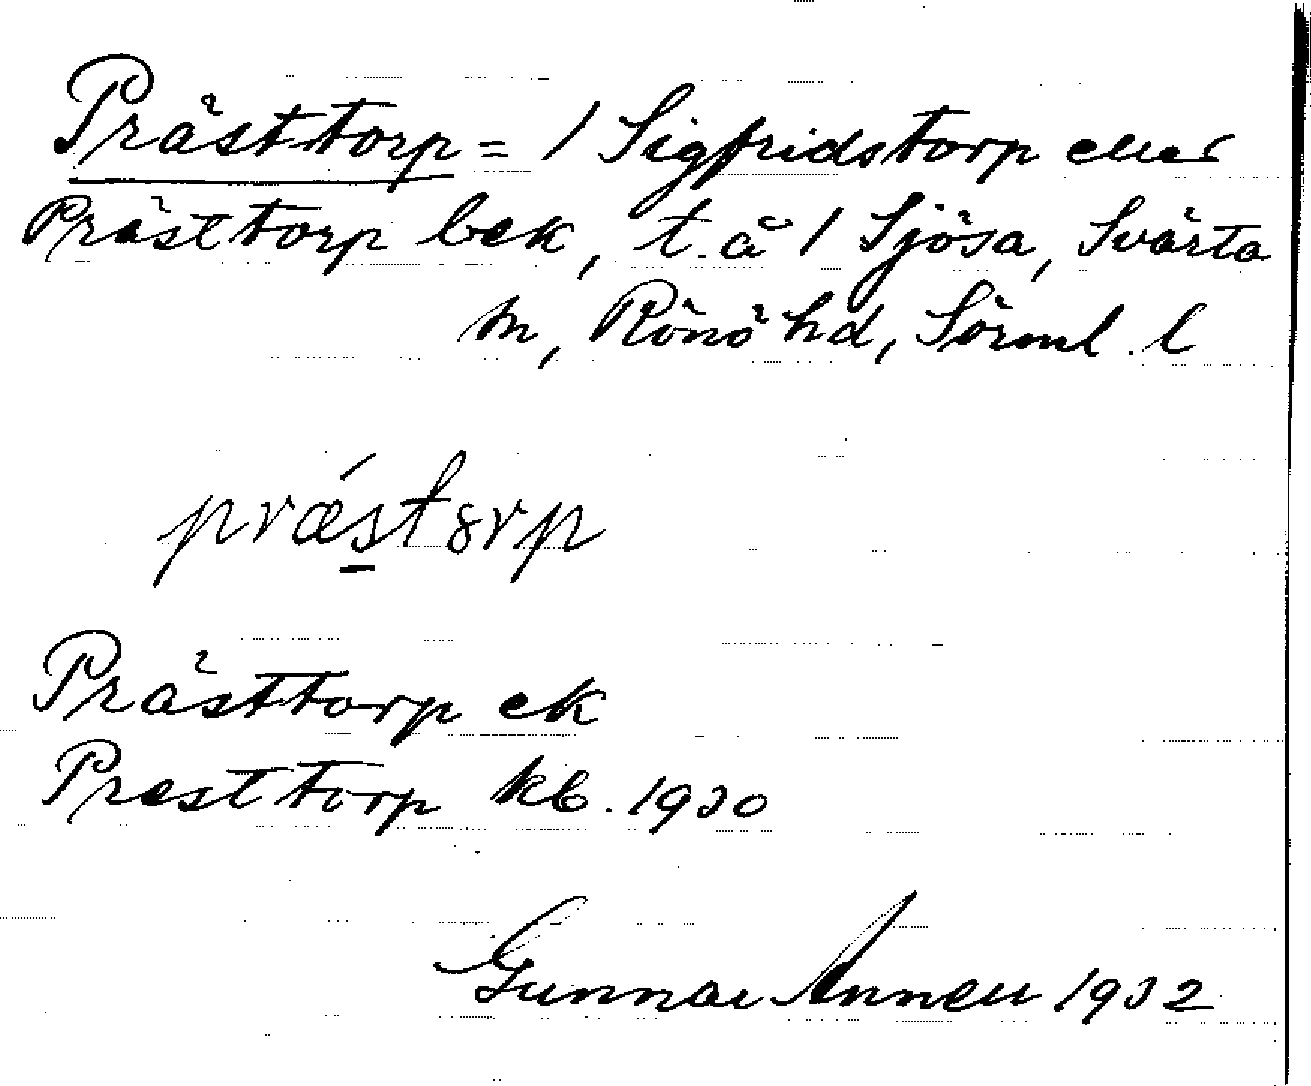 Prästtorp = / Sigfridstorp eller
Prästtorp bek, t. å / Sjösa, Svärta
sn, Rönö hd, Sörml. l
præ´stərp
Prästtorp ek
Presttorp kb. 1930
Gunnar Annell 1932